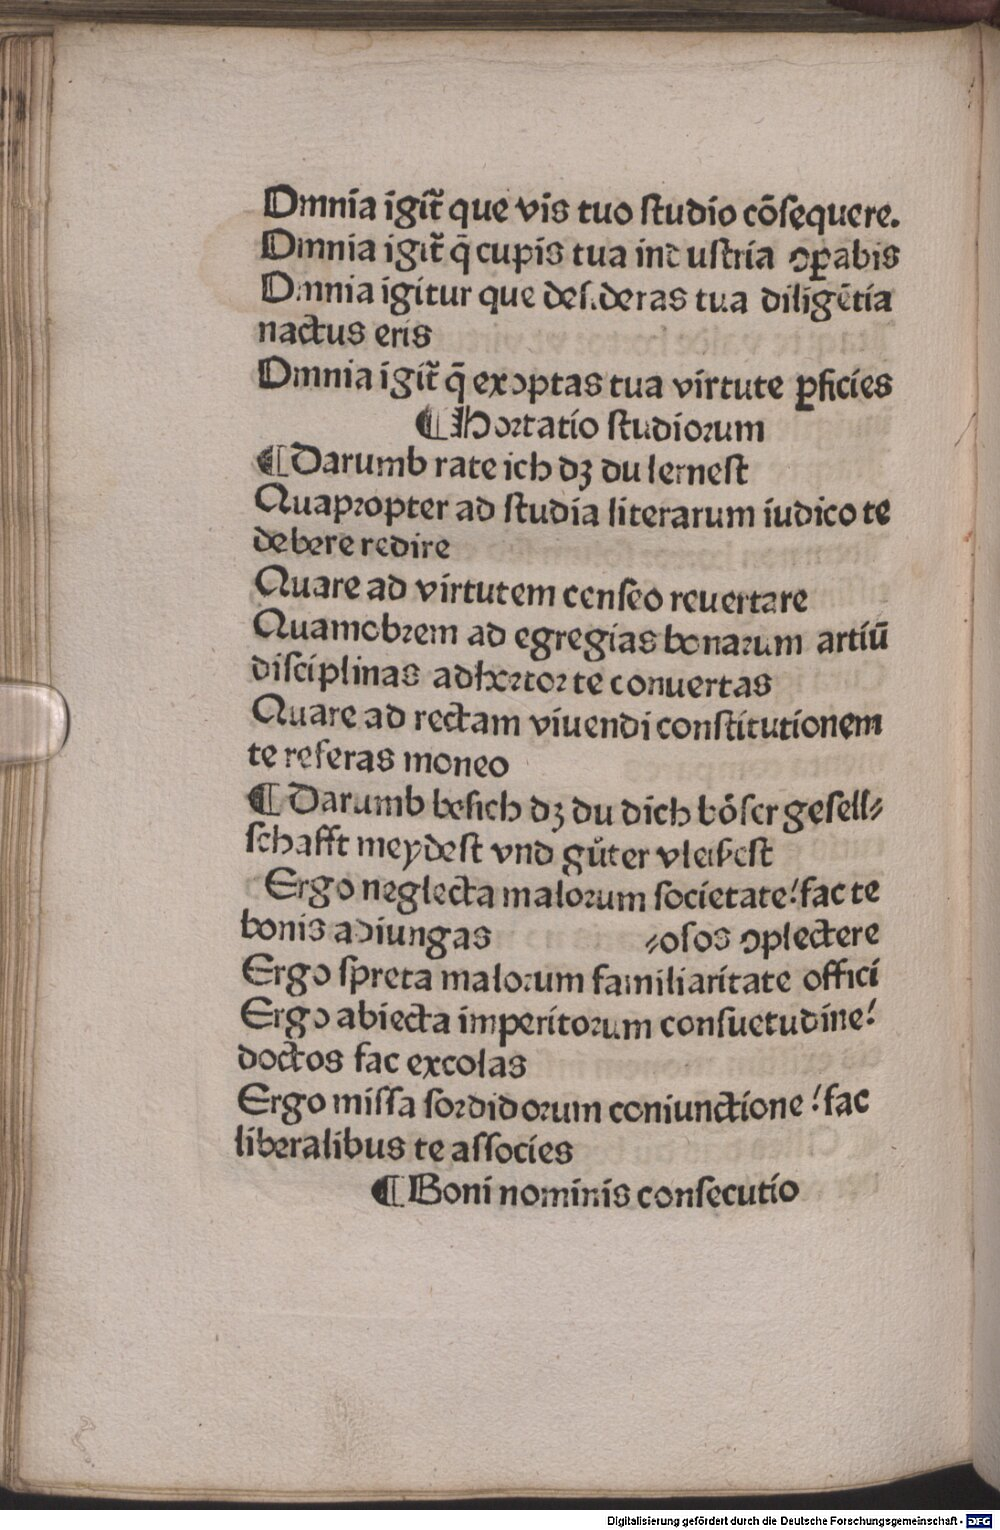 Omnia igit̃ que vis tuo ſtudio cõſequere.
Omnia igit̃ q̄ cupis tua induſtria ꝯꝑabis
Omnia igitur que deſideras tua diligẽtia
nactus eris
Omnia igit̃ q̄ exoptas tua virtute ꝑficies
¶ Hoꝛtatio ſtudioꝛum
¶ Darumb rate ich dꝫ du lerneſt
Quapꝛopter ad ſtudia literarum iudico te
debere redire
Quare ad virtutem cenſeo reuertare
Quamobꝛem ad egregias bonaꝛum artiū
diſciplinas adhoꝛtoꝛ te conuertas
Quare ad rectam viuendi conſtitutionem
te referas moneo
¶ Darumb beſich dꝫ du dich bőſer geſell⸗
ſchafft meydeſt vnd gůter vleibeſt
Ergo neglecta maloꝛum ſocietate! fac te
bonis adiungas ⸗oſos ꝯplectere
Ergo ſpreta maloꝛum familiaritate offici
Ergo abiecta imperitoꝛum conſuetudine!
doctos fac excolas
Ergo miſſa ſoꝛdidoꝛum coniunctione! fac
liberalibus te aſſocies
¶ Boni nominis conſecutio
Digitalisierung gefördert durch die Deutsche Forschungsgemeinschaft - DFG